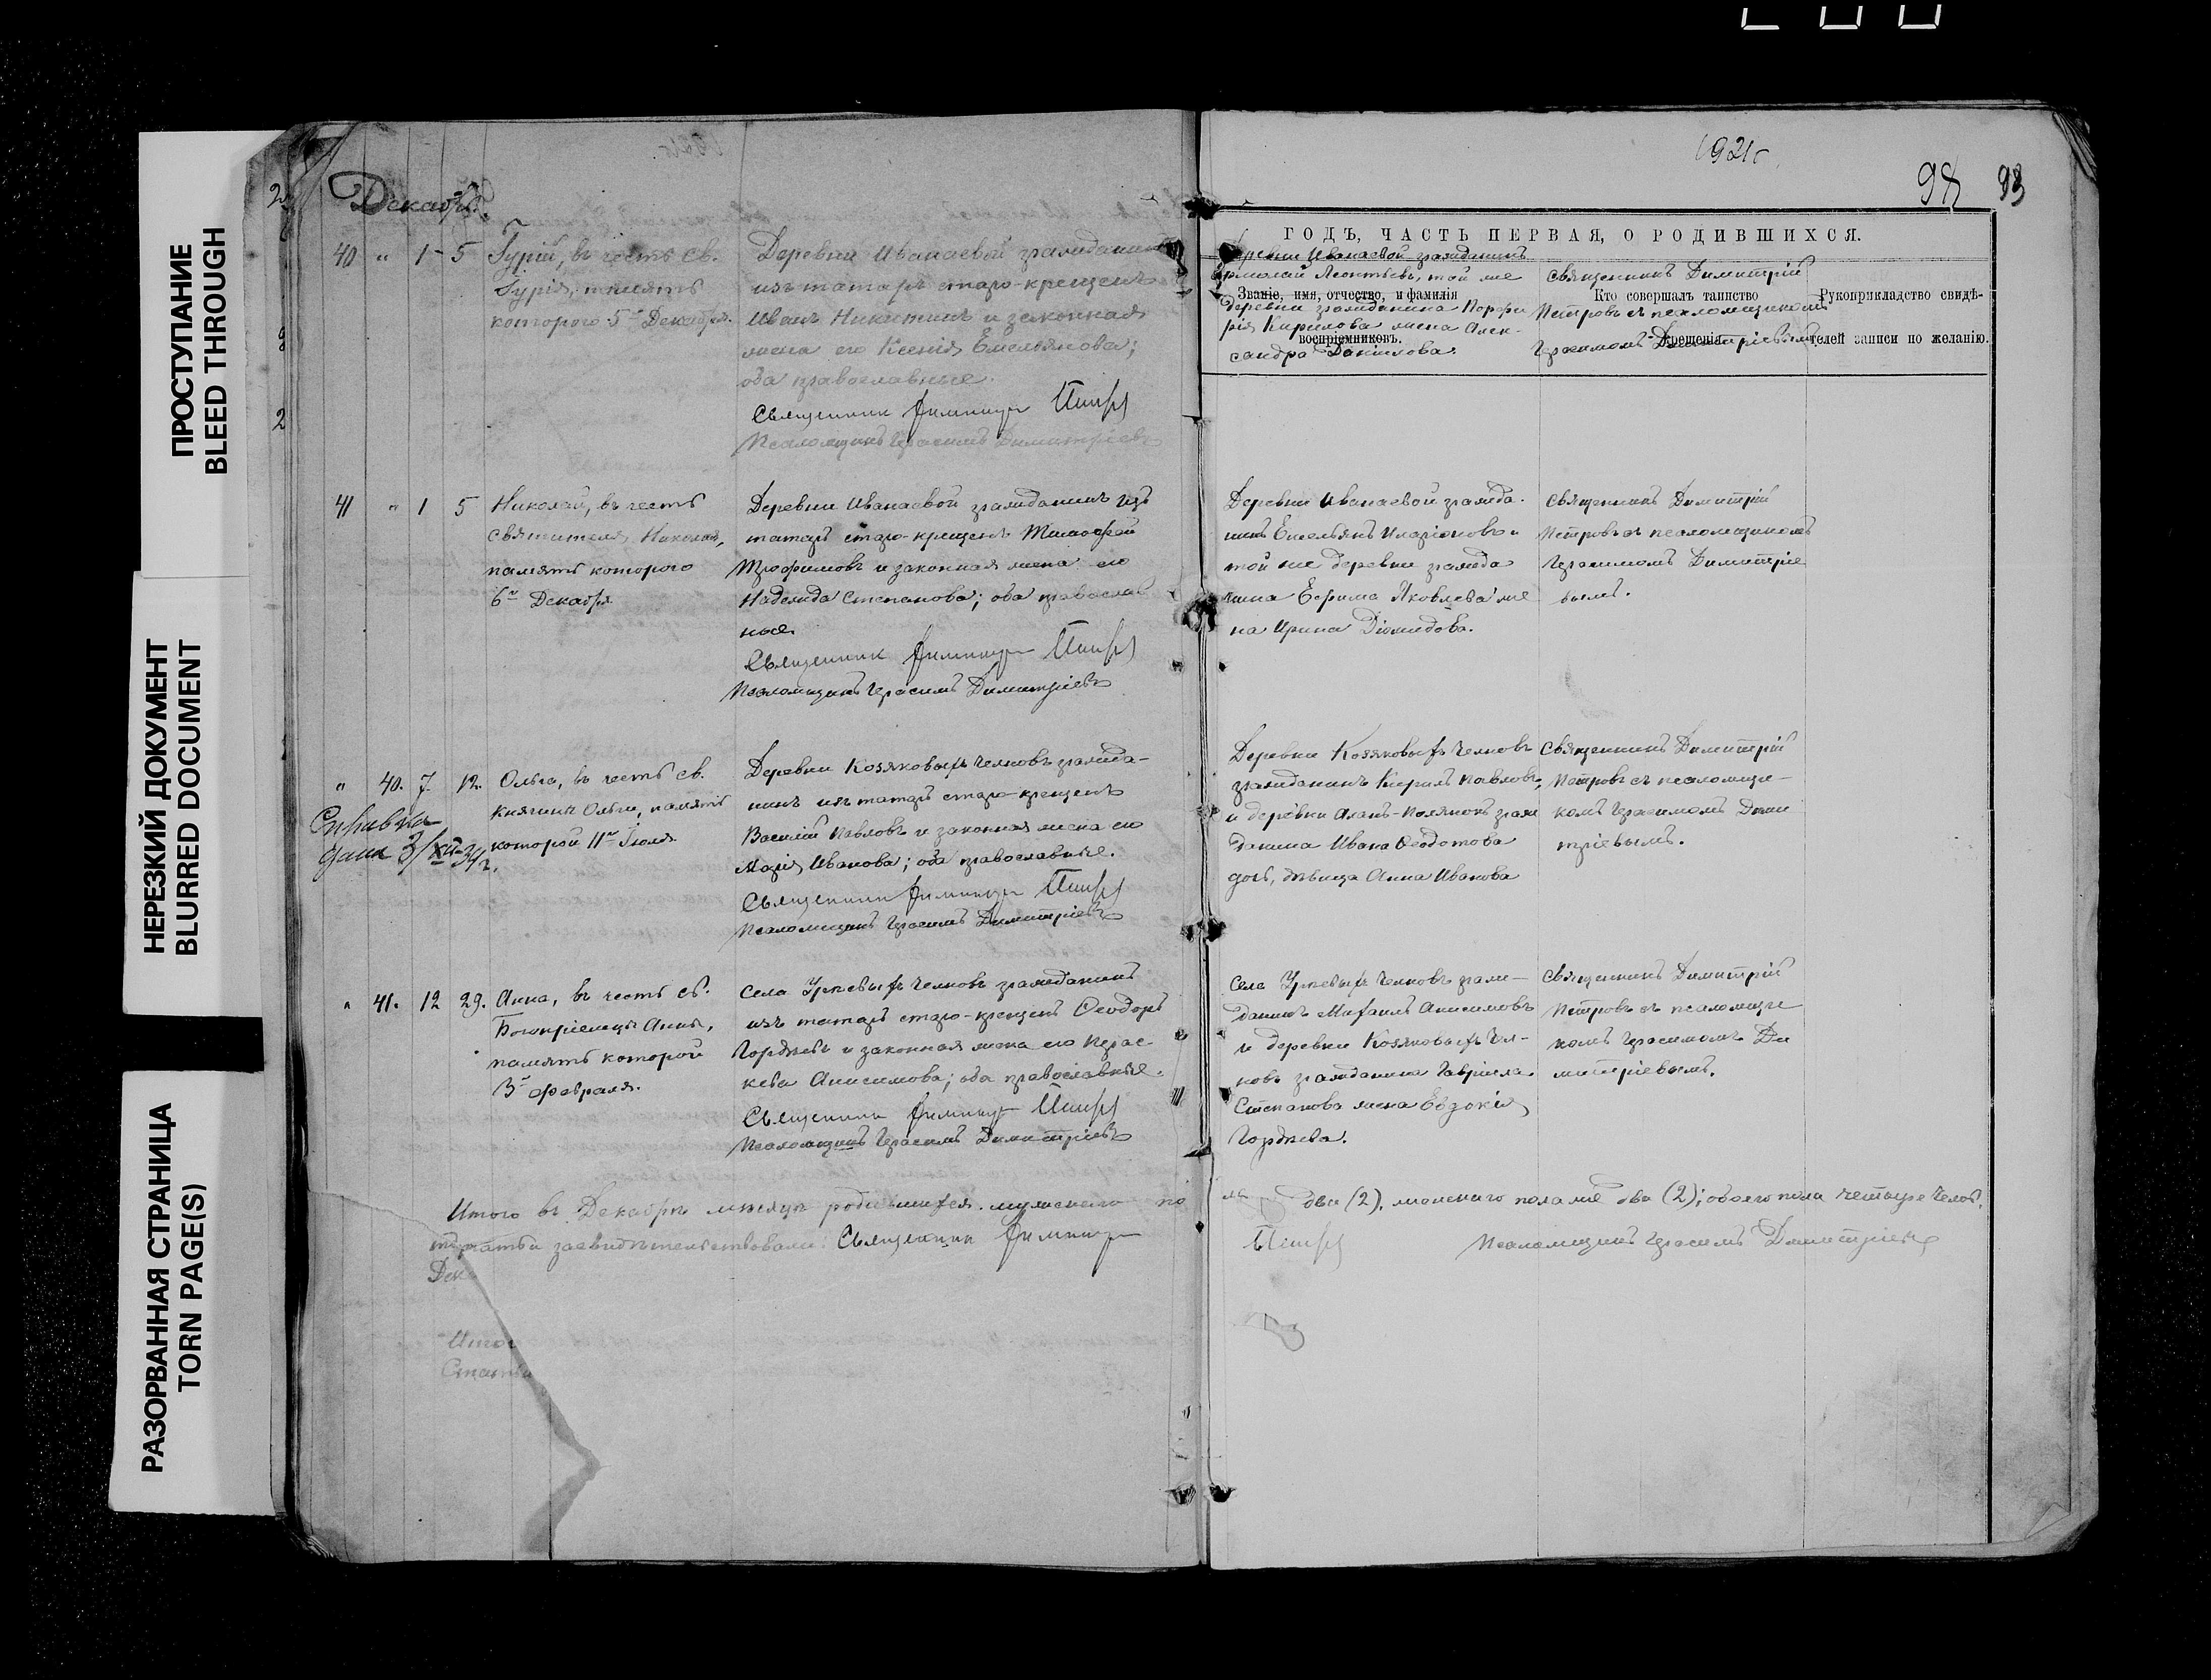 ПРОСТУПАНИЕ
BLEED THROUGH
НЕРЕЗКИЙ ДОКУМЕНТ
BLURRED DOCUMENT
РАЗОРВАННАЯ СТРАНИЦА
TORN PAGE(S)
Декабрь.
40 " 1 - 5 Гурій, въ честь св.
Гурія, память
которого 5го Декабря.
Деревни Иванаевой гражданинъ
изъ татаръ старо-крещенъ
Иванъ Никитинъ и законная
жена его Ксенія Емельянова;
оба православные.
Священник Димитрий Петров
Псаломщикъ Герасимъ Димитріевъ
41 " 1 5 Николай, въ честь
святителя Николая,
память которого
6го Декабря
Деревни Иванаевой гражданинъ изъ
татаръ старо-крещенъ Тимофей
Трофимовъ и законная жена его
Надежда Степанова; оба православ
ные.
Священник Димитрий Петров
Псаломщикъ Герасимъ Димитріевъ
" 40. 7. 12. Ольга, въ честь св.
княгини Ольги, память
которой 11го Іюля
Справка
дана 3/XII-34г.
Деревни Козяковыхъ Челновъ гражда-
нинъ изъ татаръ старо-крещенъ
Василій Павловъ и законная жена его
Марія Иванова; оба православные.
Священник Димитрий Петров
Псаломщикъ Герасимъ Димитріевъ
" 41. 12 29. Анна, въ честь св.
Богопріемицы Анны,
память которой
3го февраля.
Села Урѣевыхъ Челновъ гражданинъ
изъ татаръ старо-крещенъ Ѳеодоръ
Гордѣевъ и законная жена его Парас-
кева Анисимова; оба православные.
Священник Димитрий Петров
Псаломщикъ Герасимъ Димитріевъ
Итого въ Декабрѣ мѣсяцѣ родившихся мужескаго по
засвидѣтельствовали: Священник Димитрий
Дек
Итог
Статьи
1921г
98 93
ГОДЪ, ЧАСТЬ ПЕРВАЯ, О РОДИВШИХСЯ.
Званіе, имя, отчество, и фамилія
воспріемниковъ.
Кто совершалъ таинство
крещенія.
Рукоприкладство свидѣ-
телей записи по желанію.
Деревни Иванаевой гражданинъ
Ермолай Леонтьевъ, той же
деревни гражданина Порфи
рія Кирилова жена Алек-
сандра Данилова.
Священникъ Димитрій
Петровъ съ псаломщикомъ
Герасимомъ Димитріевымъ
Деревни Иванаевой гражда-
нинъ Емельянъ Иларіоновъ и
той же деревни гражда
нина Ефима Яковлева же
на Ирина Діомидова.
Священникъ Димитрій
Петровъ съ псаломщикомъ
Герасимомъ Димитріе
вымъ.
Деревни Козяковыхъ Челновъ
гражданинъ Кирилъ Павловъ,
и деревни Аланъ-Полянокъ граж
данина Ивана Ѳеодотова
дочь, дѣвица Анна Иванова
Священникъ Димитрій
Петровъ съ псаломщи-
комъ Герасимомъ Дими
тріевымъ.
Села Урѣевыхъ Челновъ граж-
данинъ Михаилъ Анисимовъ
и деревни Козяковыхъ Чел-
новъ гражданина Гавріила
Степанова жена Евдокія
Гордѣева.
Священникъ Димитрій
Петровъ съ псаломщи
комъ Герасимомъ Ди
митріевымъ.
ла два (2), женскаго пола же два (2); обоего пола четыре челов.
Петров Псаломщикъ Герасимъ Димитріевъ